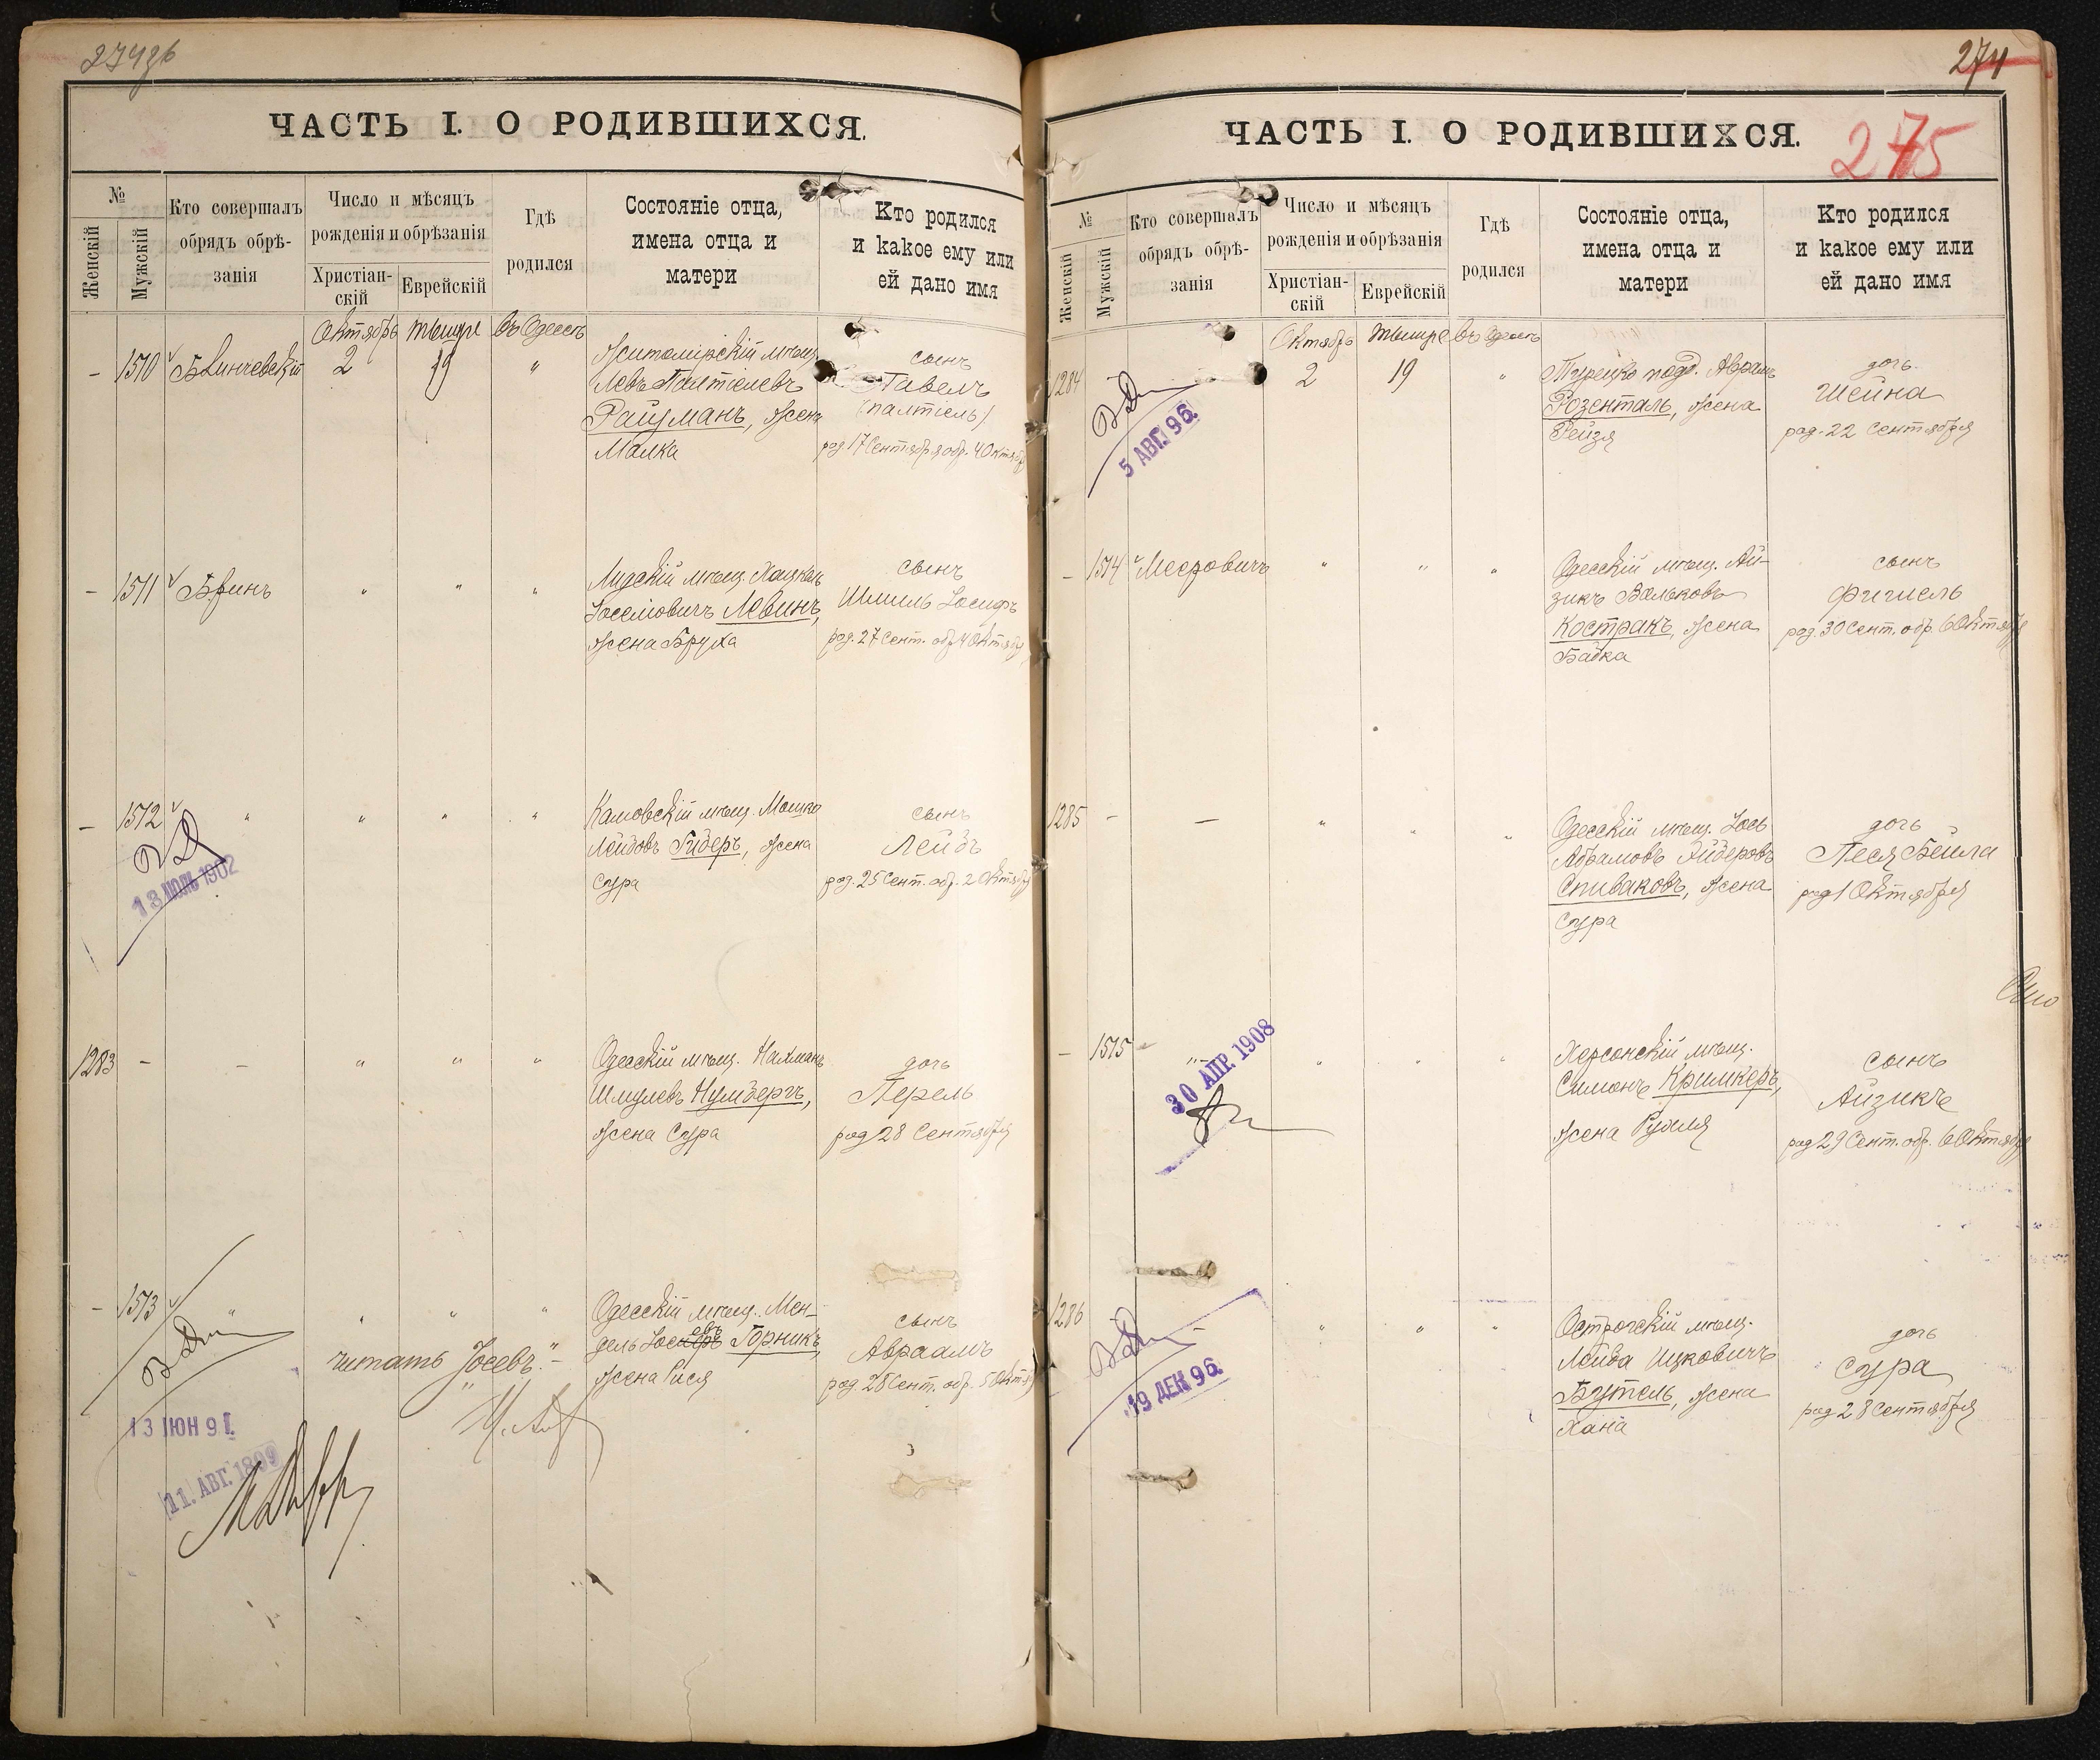 274
ЧАСТЬ I. О РОДИВШИХСЯ.
№
Женскій
Мужскій
Кто совершалъ
обрядъ обрѣ-
занія
Число и мѣсяцъ
рожденія и обрѣзанія
Христіан-
скій
Еврейскій
Гдѣ
родился
Состояніе отца,
имена отца и
матери
Кто родился
и какое ему или
ей дано имя
Октябрь Тышре въ Одессѣ
– 1510 Блинчевскій 2 19 "
Житомірскій мѣщ.
Левъ Палтіелевъ
Райцманъ, жена
Малка
сынъ
Павелъ
(Палтіель)
род. 17 Сентября обр. 4 Октяб
– 1511 Бринъ " " "
Лидскій мѣщ. Хацкель
Іоселіовичъ Левинъ,
жена Бруха
сынъ
Шмиль Іосифъ
род. 27 Сент. обр. 4 Октяб
– 1512 " " " "
13 ИЮЛЬ 1902
мѣщ. Мошко
Лейбовъ Гидеръ, жена
Сура
сынъ
Лейбъ
род. 25 Сент. обр. 2 Октября
1283 – – " " "
Одесскій мѣщ. Нахманъ
Шмулевъ Нумбергъ,
жена Сура
дочь
Перель
род 28 Сентября
– 1513 " " " "
13 ІЮН 91.
11. АВГ. 1899
Одесскій мѣщ. Мен-
дель Іосевъ Горникъ,
жена Рися
читать "Іосевъ" –
сынъ
Авраамъ
род. 28 Сент. обр. 5 Окт.
274
275
ЧАСТЬ I. О РОДИВШИХСЯ.
№
Женскій
Мужскій
Кто совершалъ
обрядъ обрѣ-
занія
Число и мѣсяцъ
рожденія и обрѣзанія
Христіан-
скій
Еврейскій
Гдѣ
родился
Состояніе отца,
имена отца и
матери
Кто родился
и какое ему или
ей дано имя
Октябрь Тышре въ Одессѣ
1284 2 19 "
5 АВГ. 96.
Турецко подд. Абрамъ
Розенталь, жена
Рейзя
дочь
Шейна
род. 22 Сентября
– 1514 Мееровичъ " " "
Одесскій мѣщ. Ай-
зикъ Вольковъ
Костракъ, жена
Бабка
сынъ
Фишель
род. 30 Сент. обр. 6 Октября
1285 – – " " "
Одесскій мѣщ. Іось
Абрамовъ Лейдеровъ
Спиваковъ, жена
Сура
дочь
Песя Бейла
род 1 Октября
– 1515 " " " "
30 АПР. 1908
Херсонскій мѣщ.
Симонъ Кримкеръ,
жена Рухля
сынъ
Айзикъ
род 29 Сент. обр. 6 Октября
1286 – " " "
19 ДЕК 96.
Острогскій мѣщ.
Лейба Ицковичъ
Бутель, жена
Хана
дочь
Сура
род 28 Сентября